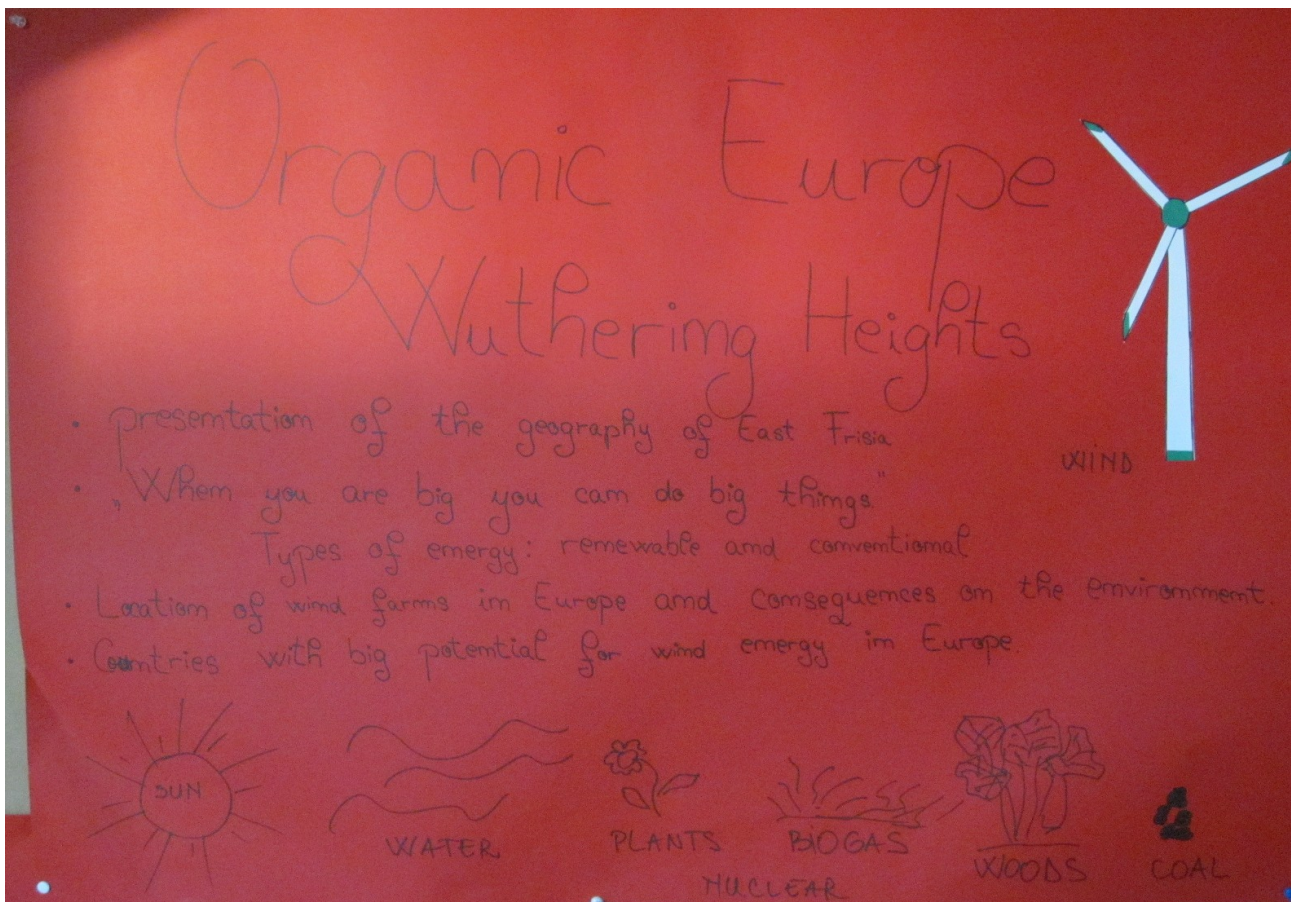 Organic Europe
Wuthering Heights
• presentation of the geography of East Frisia
• „When you are big you can do big things."
Types of energy: renewable and conventional
• Location of wind farms in Europe and consequences on the environment.
• Countries with big potential for wind energy in Europe.
WIND
SUN
WATER
PLANTS
BIOGAS
WOODS
COAL
NUCLEAR